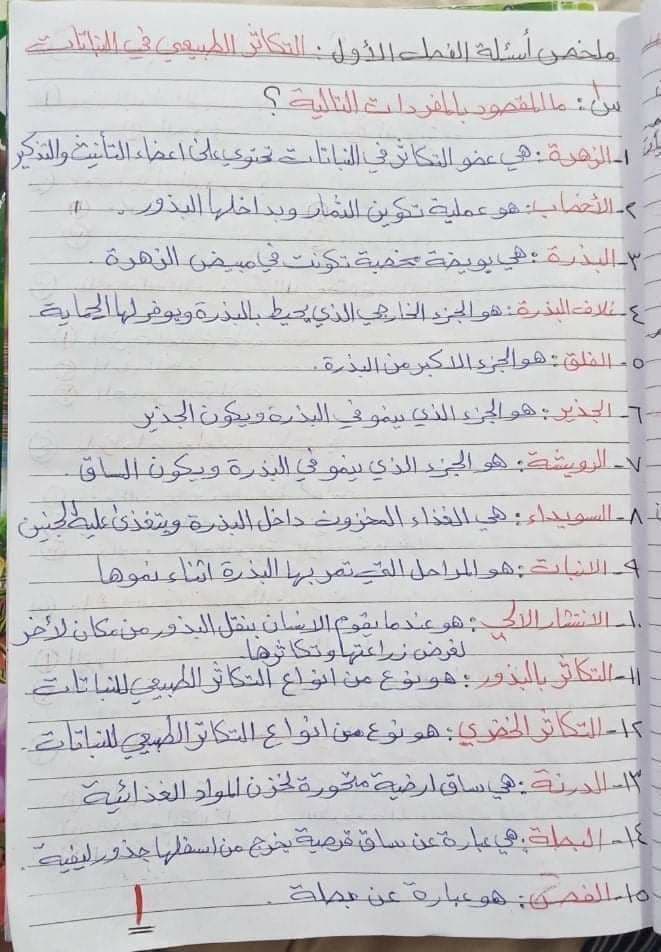 ملخص أسئلة الفصل الأول : التكاثر الطبيعي في النباتات
س١: ما المقصود بالمفردات التالية ؟
١- الزهرة : هي عضو التكاثر في النباتات تحتوي على اعضاء التأنيث والتذكير
٢- الأخصاب : هو عملية تكوين الثمار وبداخلها البذور .
٣- البذرة : هي بويضة مخصبة تكونت في مبيض الزهرة .
٤- غلاف البذرة : هو الجزء الخارجي الذي يحيط بالبذرة ويوفر لها الحماية .
٥- الفلق : هو الجزء الاكبر من البذرة .
٦- الجذير : هو الجزء الذي ينمو في البذرة ويكون الجذير
٧- الرويشة : هو الجزء الذي ينمو في البذرة ويكون الساق .
٨- السويداء : هي الغذاء المخزون داخل البذرة ويتغذى عليه الجنين
٩- الانبات : هو المراحل التي تمر بها البذرة اثناء نموها
١٠- الانتشار الالي : هو عندما يقوم الانسان بنقل البذور من مكان لأخر
لغرض زراعتها وتكاثرها
١١- التكاثر بالبذور : هو نوع من انواع التكاثر الطبيعي للنباتات
١٢- التكاثر الخضري : هو نوع من انواع التكاثر الطبيعي للنباتات .
١٣- الدرنة : هي ساق ارضية متحورة لخزن المواد الغذائية
١٤- البصلة : هي عبارة عن ساق قرصية يخرج من اسفلها جذور ليفية .
١٥- الفص : هو عبارة عن بصلة .
١